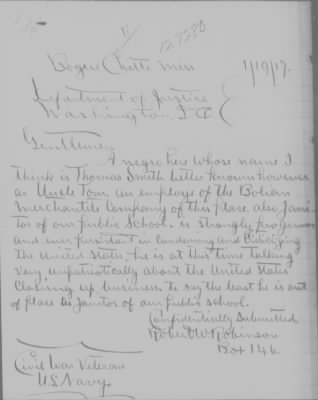 11
157320
Bogue Chitto Miss
1/19/17-
Department of Justice
Washington, D C
Gentlemen
A negro here whose name I
think is Thomas Smith, better known however
as Uncle Tom, an employe of the Bolian
Merchantile Company of this place, also Jani-
tor of our public School. is strongly progerman
and ever persistant in Condeming and Criticizing
the United States. he is at this time talking
very unpatriotically about the United States
Closeing up buisness. to say the least he is out
of place as Janitor of our public school.
Confidentially Submitted
Robert W Robinson
Box 146.
Civil War Veteran
U.S. Navy.